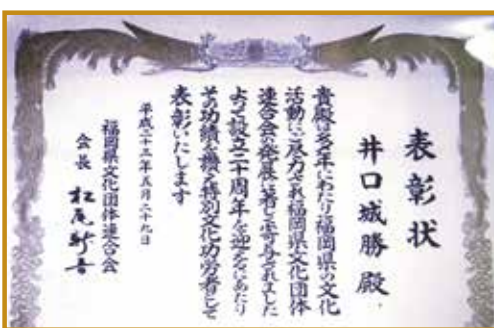 表彰状
井口城勝殿
貴殿は多年にわたり福岡県の文化
活動にご尽力され福岡県文化団体
連合会の発展に著しく寄与されました
よって設立二十周年を迎えるにあたり
その功績を讃え特別文化功労者として
表彰いたします
平成二十三年五月二十九日
福岡県文化団体連合会
会長 松尾新吾